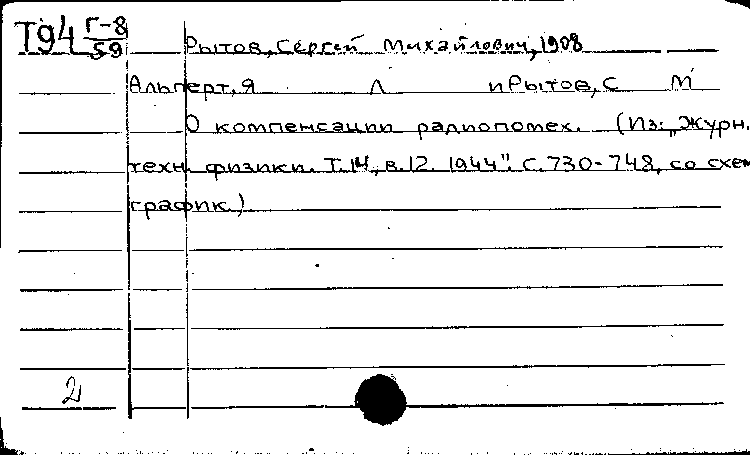 Т94 Г-8
59
Рытов, Сергей Михайлович, 1908
Альперт, Я Л и Рытов, С М
О компенсации радиопомех. (Из: „Журн.
техн. физики. Т.14, в.12. 1944". С.730-748, со схем
график.)
2